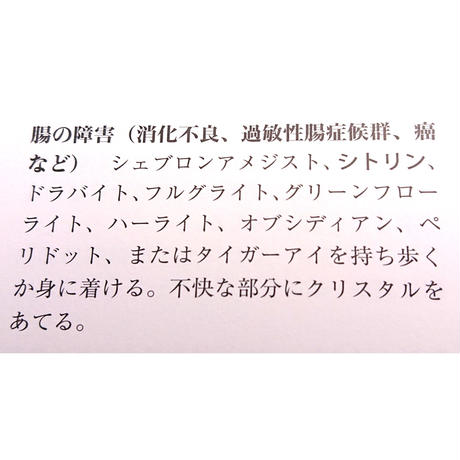 腸の障害（消化不良、過敏性腸症候群、癌
など）　シェブロンアメジスト、シトリン、
ドラバイト、フルグライト、グリーンフロー
ライト、ハーライト、オブシディアン、ペ
リドット、またはタイガーアイを持ち歩く
か身に着ける。不快な部分にクリスタルを
あてる。